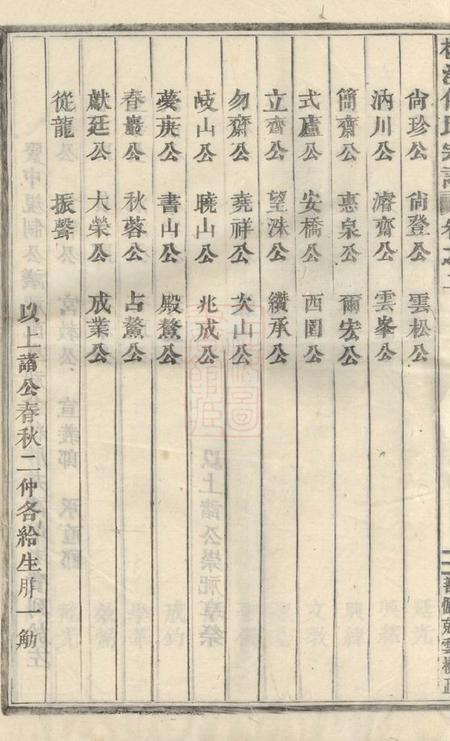 氏宗譜 卷之二
尙珍公 尙登公 雲松公
汭川公 濬齋公 雲峯公
簡齋公 惠泉公 爾宏公
式廬公 安橋公 西圃公
立齋公 望洙公 纘承公
勿齋公 堯祥公 次山公
岐山公 曉山公 兆成公
夢庚公 書山公 殿鰲公
春巖公 秋蓉公 占鰲公
獻廷公 大榮公 成業公
從龍 振聲 以上諸公春秋二仲各給生胙一觔